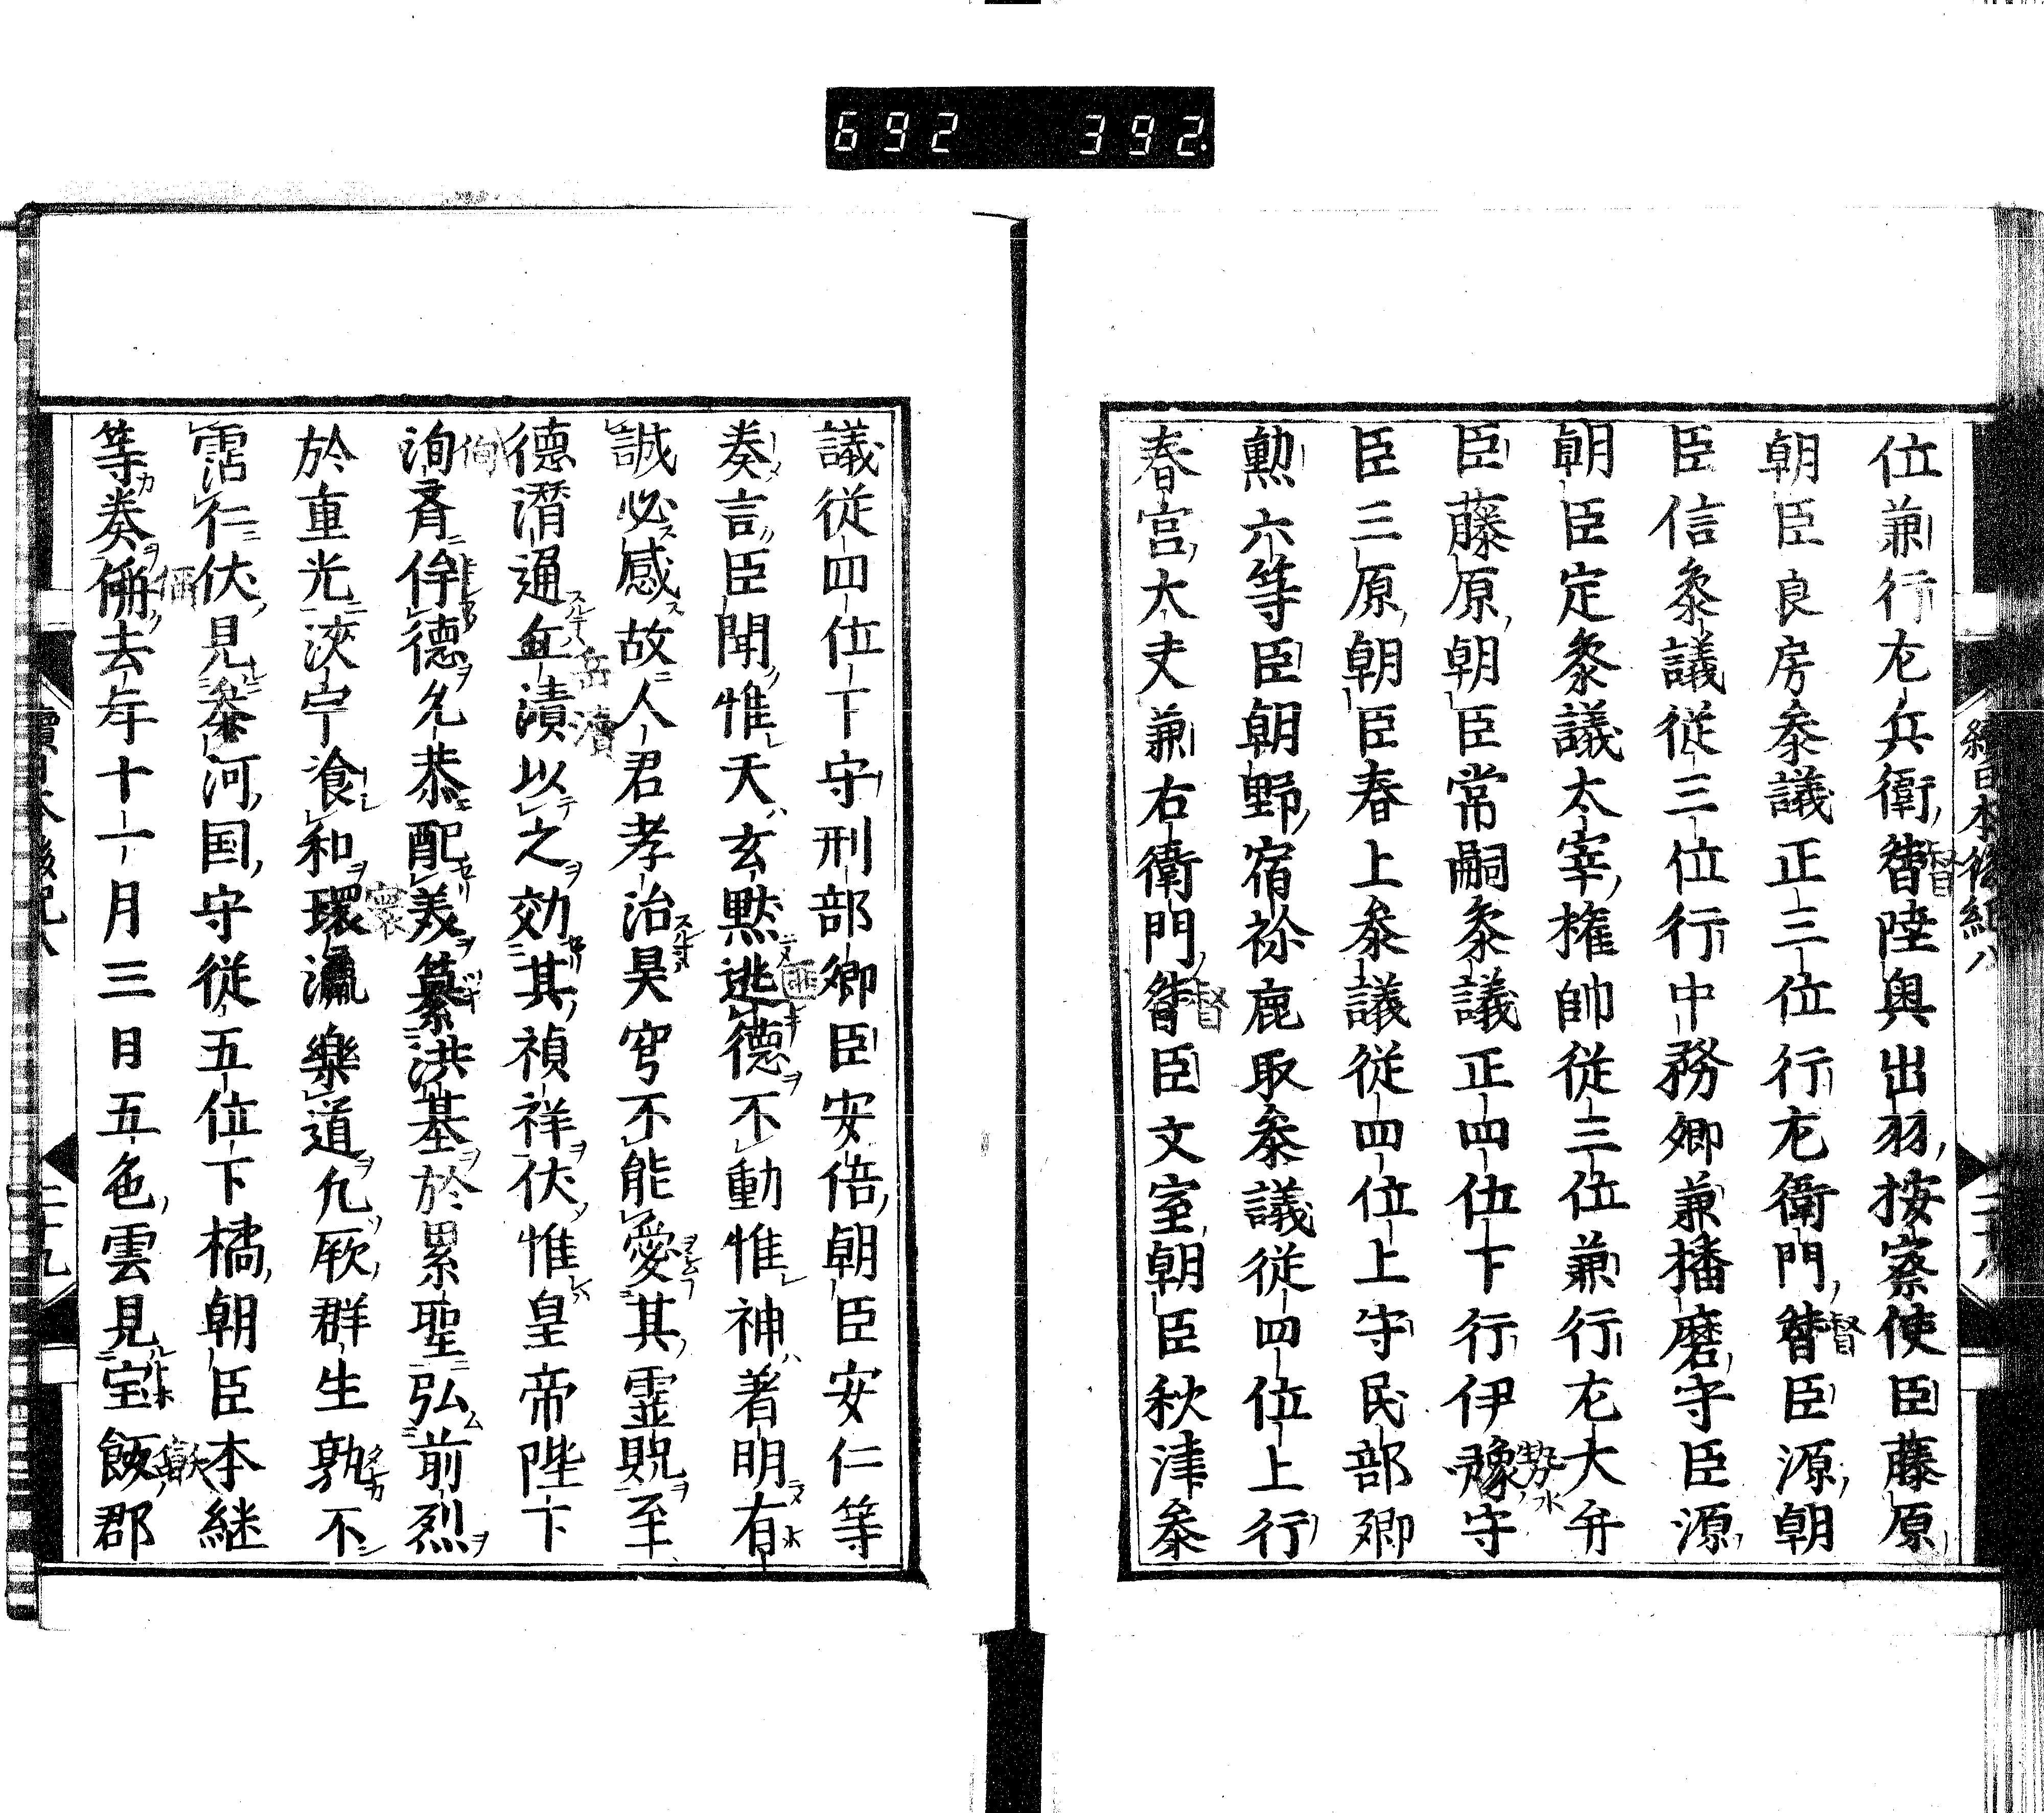 692 392.
続日本後紀八
位兼行左兵衛督陸奥出羽按察使臣藤原
朝臣良房参議正三位行左衛門督臣源朝
臣信参議従三位行中務卿兼播磨守臣源
朝臣定参議太宰権帥従三位兼行左大弁
臣藤原朝臣常嗣参議正四位下行伊豫守
臣三原朝臣春上参議従四位上守民部卿
勲六等臣朝野宿祢鹿取参議従四位上行
春宮大夫兼右衛門督臣文室朝臣秋津参
議従四位下守刑部卿臣安倍朝臣安仁等
奏言臣聞惟天玄黙逃德不動惟神著明有
誠必感故人君孝治昊穹不能愛其霊貺至
德潛通缶瀆以之効其禎祥伏惟皇帝陛下
洵斉侔德允恭配美纂洪基於累聖弘前烈
於重光浹宇飡和環瀛樂道凢厥群生孰不
霑仁伏見参河国守従五位下橘朝臣本継
等奏偁去年十一月三日五色雲見宝飯郡